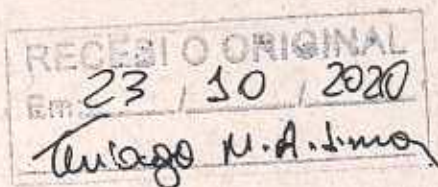 RECEBI O ORIGINAL
Em: 23 / 10 / 2020
Thiago M.A. Lima